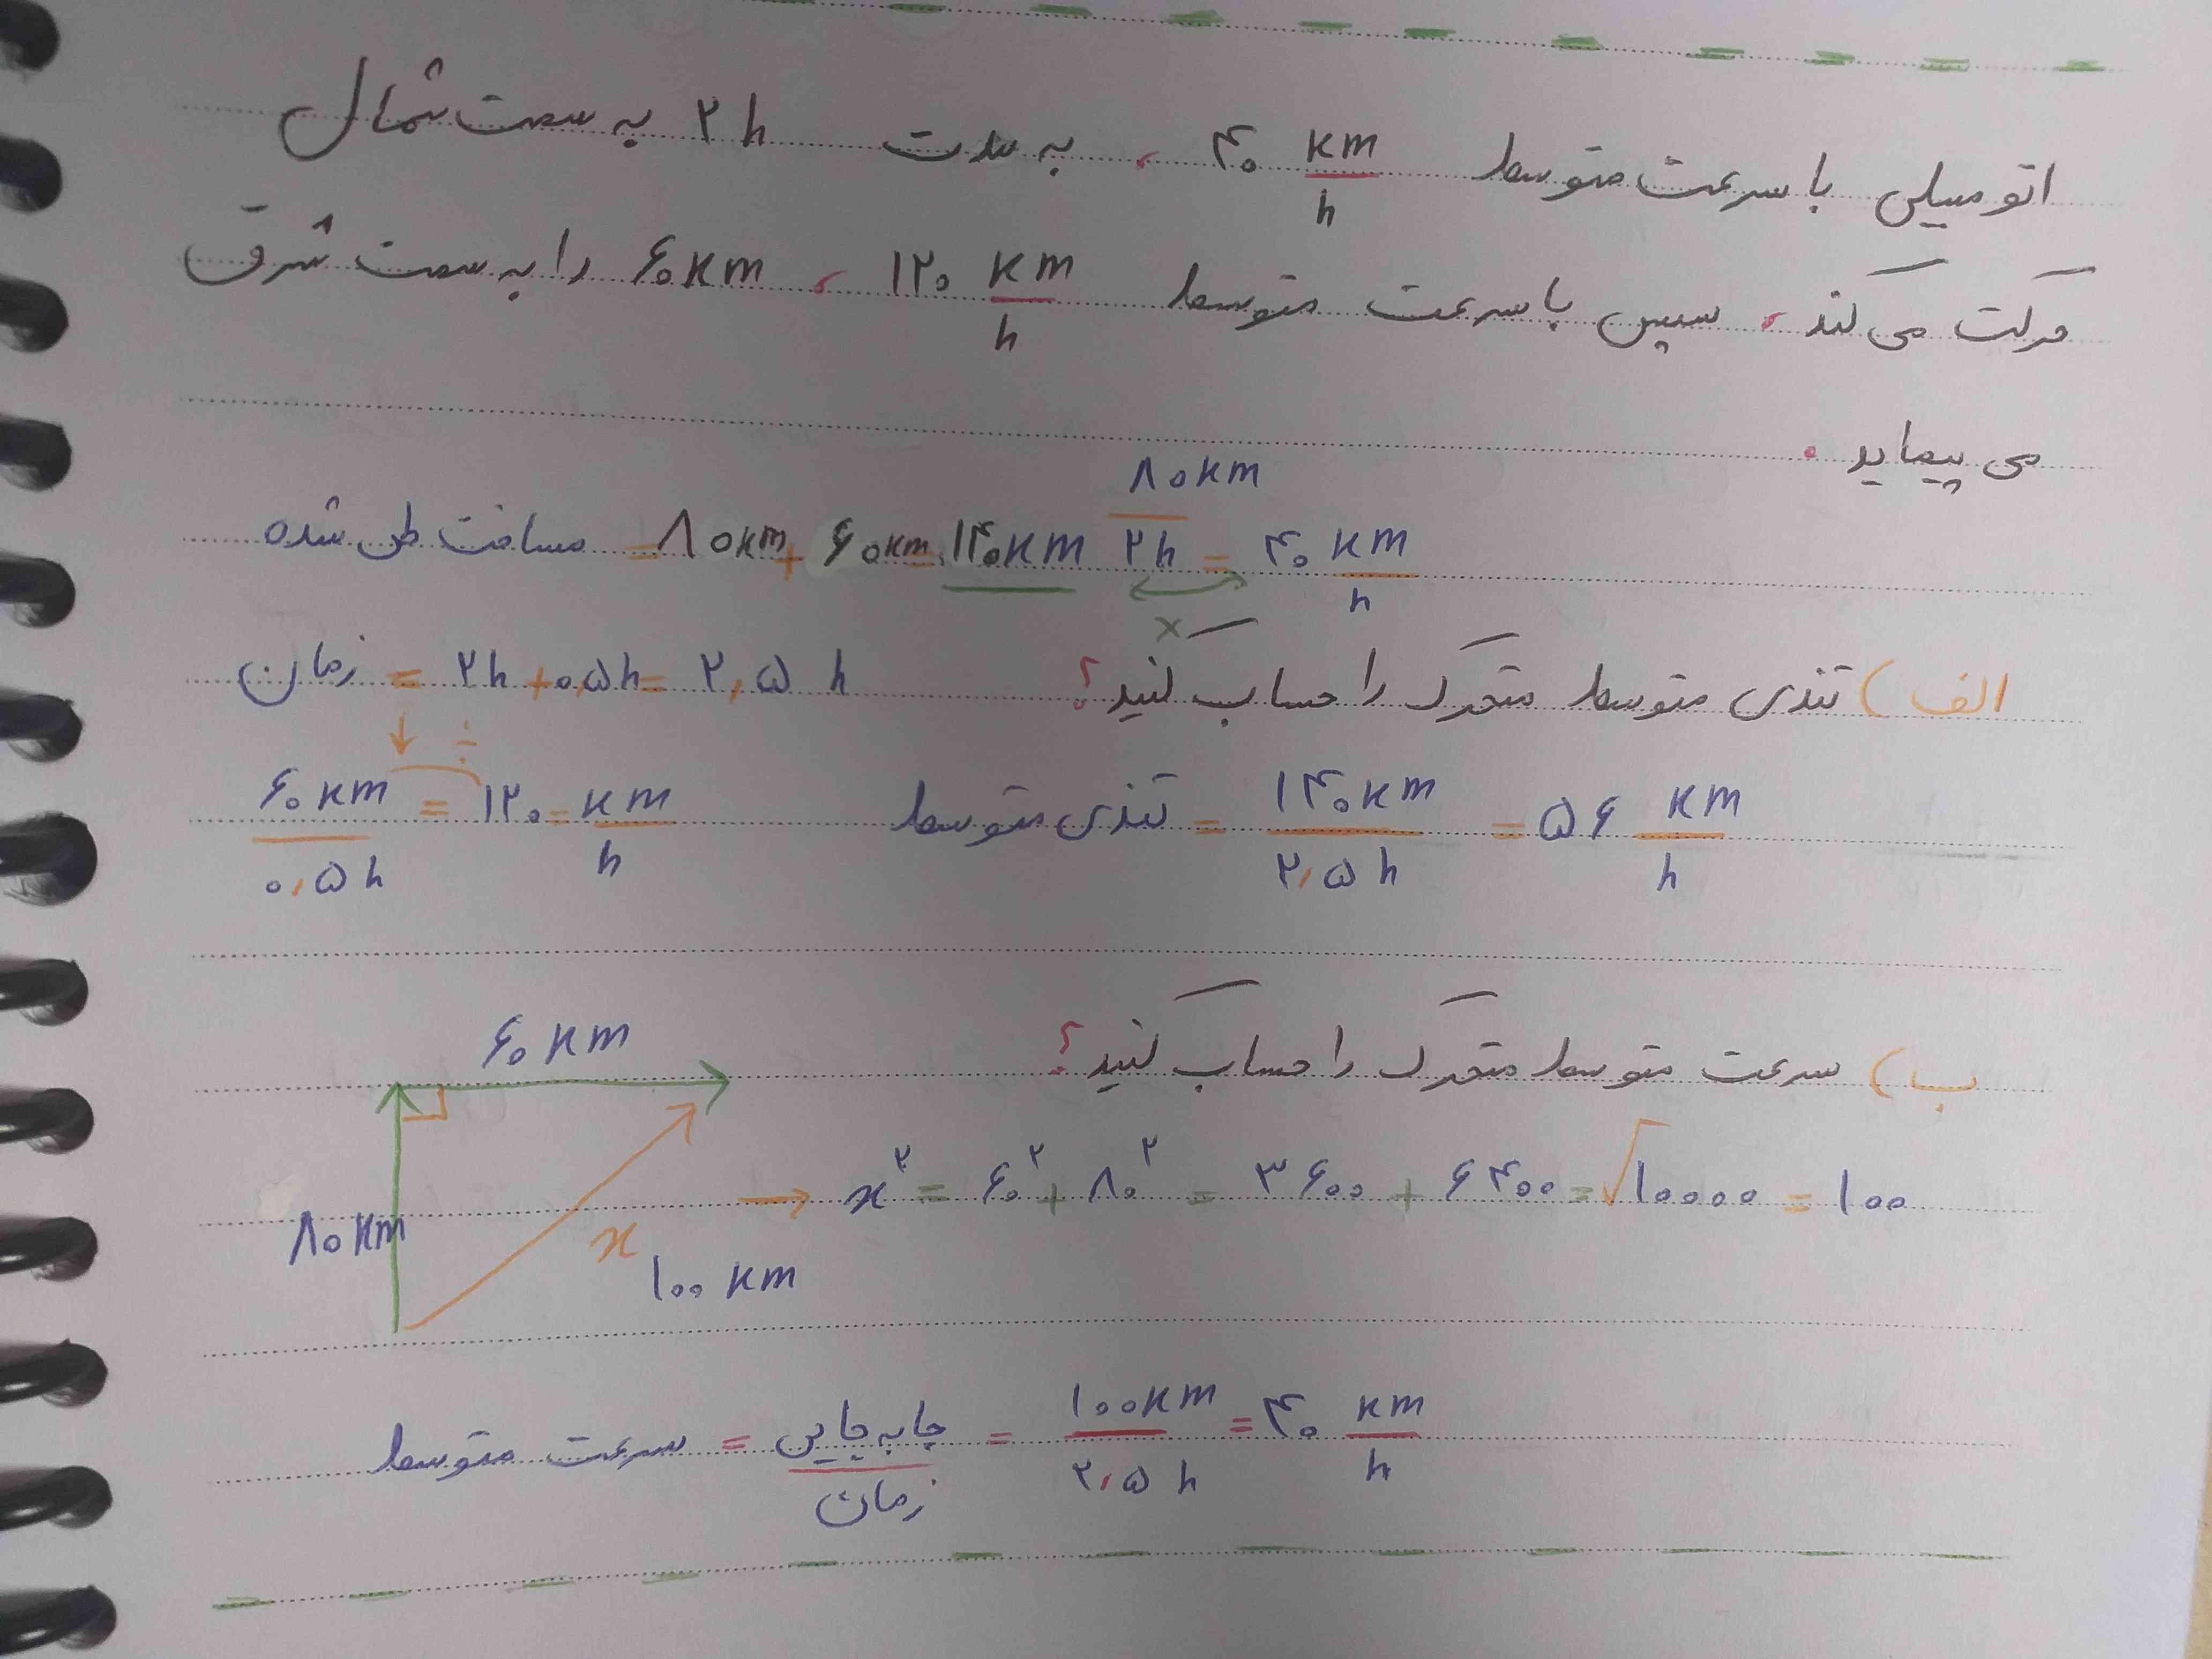 اتومبیلی با سرعت متوسط ۴۰ km/h ، به مدت ۲ h به سمت شمال
حرکت می کند، سپس با سرعت متوسط ۱۲۰ km/h ، ۶۰ km را به سمت شرق
می پیماید .
مسافت طی شده = ۸۰ km + ۶۰ km = ۱۴۰ km ۸۰ km / ۲ h = ۴۰ km/h
×
الف) تندی متوسط متحرک را حساب کنید؟ زمان = ۲ h + ۰٫۵ h = ۲٫۵ h
↓ ÷
۶۰ km / ۰٫۵ h = ۱۲۰ = km/h تندی متوسط = ۱۴۰ km / ۲٫۵ h = ۵۶ km/h
ب) سرعت متوسط متحرک را حساب کنید؟
۶۰ km
۸۰ km
x
۱۰۰ km
→ x² = ۶۰² + ۸۰² = ۳۶۰۰ + ۶۴۰۰ = √۱۰۰۰۰ = ۱۰۰
سرعت متوسط = جابه جایی / زمان = ۱۰۰ km / ۲٫۵ h = ۴۰ km/h